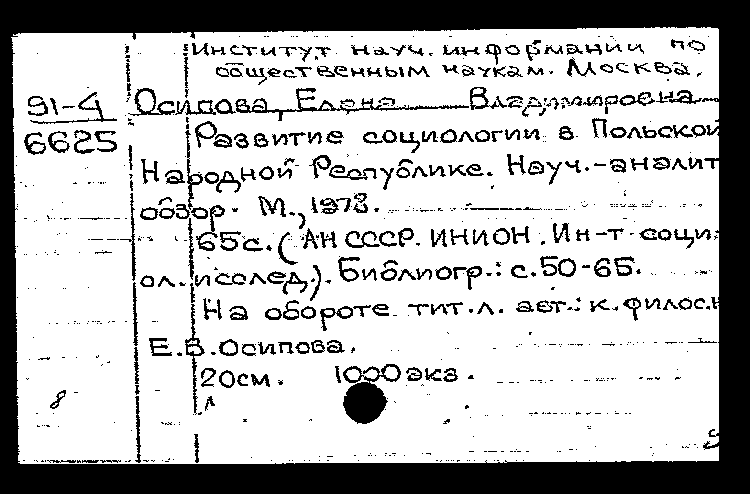 Институт науч. информации по
общественным наукам. Москва.
91-4 Осипова, Елена Владимировна
6625 Развитие социологии в Польской
Народной Республике. Науч.-аналит
обзор. М., 1973.
65с. (АН СССР. ИНИОН. Ин-т соци
ол. исслед.). Библиогр.: с.50-65.
На обороте тит.л. авт.: к.филос.н
Е.В.Осипова.
20см. 1000 экз.
8